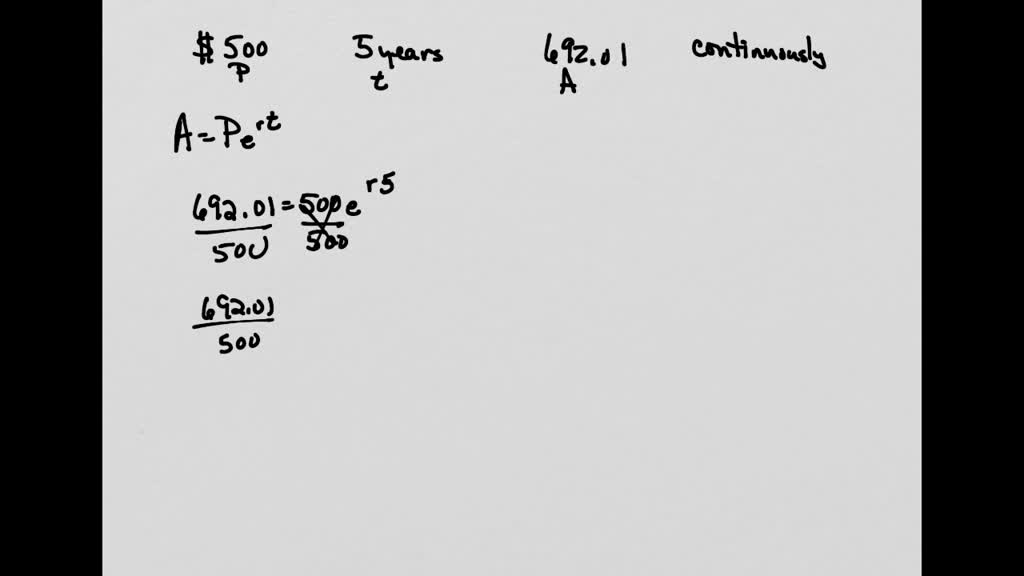 $500 5 years 692.01 continuously
P t A
A = Pe^rt
692.01 = 500 e^r5
500 500
692.01
500